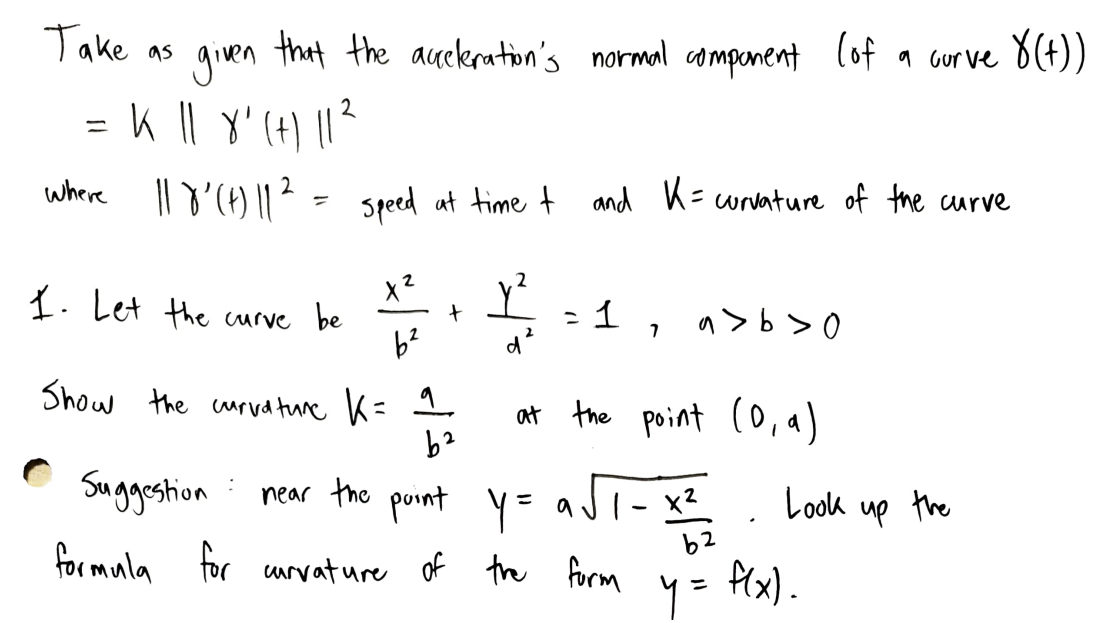 Take as given that the acceleration's normal component (of a curve γ(t))
= K || γ'(t) ||²
where || γ'(t) ||² = speed at time t and K = curvature of the curve
1. Let the curve be x²/b² + y²/a² = 1 , a > b > 0
Show the curvature K = a/b² at the point (0, a)
Suggestion : near the point y = a√(1 - x²/b²) . Look up the
formula for curvature of the form y = f(x).